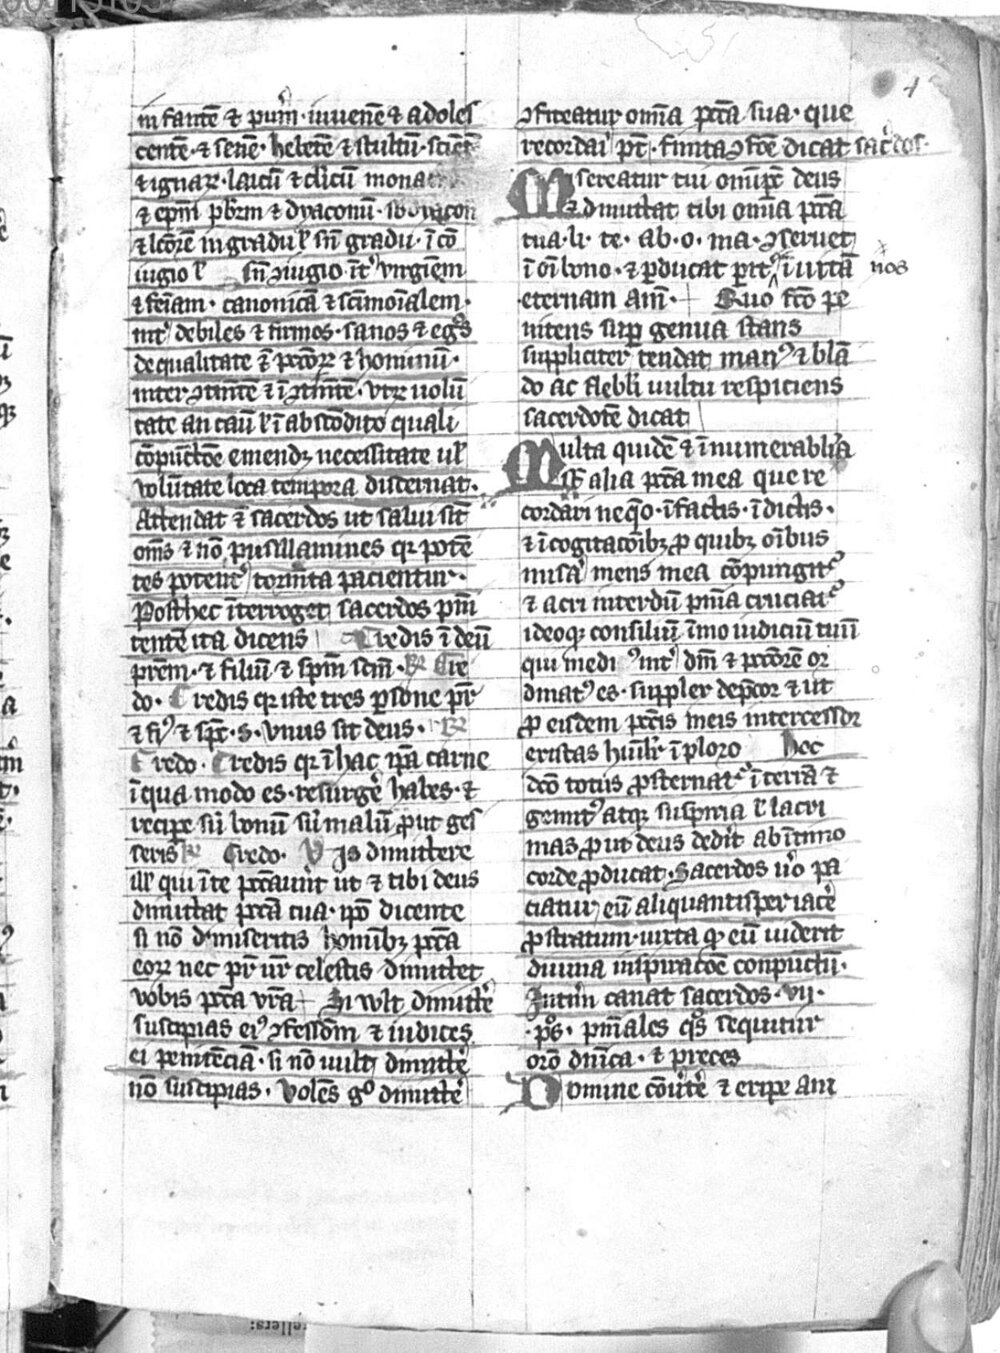 infantē & puerū · iuuenē & adoles
centē · & senē · hebetē & stultū · sciētē
& ignarꝝ · laicū & cl̄icū mona
& ep̄m pb̄rm & dyaconū · sbdyacon
& lcōrē in gradu ł sn̄ gradu · ī cō
iugio ł sn̄ ꝯiugio · īt͛ virginē
& feīam · canonicā & sc̄imoīalem ·
int͛ debiles & firmos · sanos & egͦs
de qualitate ē pctōꝝ & hominū ·
inter ꝯtinētē & īꝯtinētē · vtꝝ uolū
tate an casu ł ī abscōdito quali
cōpūctōe emendꝫ necessitate ul̄
volūtate loca tempora discernat ·
Attendat ē sacerdos ut salui sīt
om̄s & nō pusillamines qꝛ potē
tes potent͛ torm̄ta pacientur ·
Posthec īterroget sacerdos pni
tentē ita dicens Credis ī deū
prēm · & filiū & sp̄m scm̄ · ꝶ Cre
do · Credis qꝛ iste tres ꝑsone pr̄
& fiꝰ & sp̄c · s · vnus sit deus · ꝶ
Credo · Credis qꝛ ī hac ip̄a carne
ī qua modo es · resurge͛ habes · &
recipe siū bonū siū malū ꝓut ges
seris ꝶ Credo · Vis dimittere
ill̄ qui ī te pctāuīt ut & tibi deus
dimittat pctā tua · ip̄o dicente
si nō dimiseritis hominibꝫ pctā
eoꝝ nec pr̄ ur̄ celestis dimittet
vobis pctā vrā Si vult dimitte͛
suscipias eiꝰ ꝯfessiōm & iudices
ei penitēciā · si nō uult dimitte͛
nō suscipias · Volēs gͦ dimitte͛
4
ꝯfiteatur omīa pctā sua · que
recordari pt̄ · finita ꝯfōe dicat sac͛dos ·
Misereatur tui omīpc̄ deus
& dimittat tibi omīa pctā
tua · li · te · ab · o · ma · ꝯseruet
ī oī bono · & ꝑducat ꝑit͛ ī uitā nos
eternam am̄ · Quo fc̄o pe
nitens sup̄ genua stans
suppliciter tendat manꝰ & blā
do ac flebili uultu respiciens
sacerdotē dicat
Multa quidē & īnumerabilīa
st̄ alia pctā mea que re
cordari neqͦo · ī factis · ī dictis ·
& ī cogitacōibꝫ ꝓ quibꝫ oībus
misa͛ mens mea cōpungit͛
& acri interdū pnīa cruciat͛
ideoqꝫ consiliū īmo iudiciū tuū
qui mediꝰ int͛ dm̄ & pctōrē or
dinatꝰ es · supplet͛ dep̄cor & ut
ꝓ eisdem pctīs meis intercessor
existas hūilr̄ īploro Hoc
dc̄o totus ꝓsternat͛ ī terrā &
gemitꝰ atqꝫ suspiria ł lacri
mas ꝓut deus dedit ab ītimo
corde ꝓducat · Sacerdos uͦo pa
ciatur eū aliquantisper iace͛
ꝓstratum · iuxta qd̄ eū uiderit
diuina inspiracōe conpūctū ·
Interī canat sacerdos · vii ·
· psͦ · pnīales qͦs sequitur
orō dnīca · & preces
Domine cōu͛te͛ & eripe ani